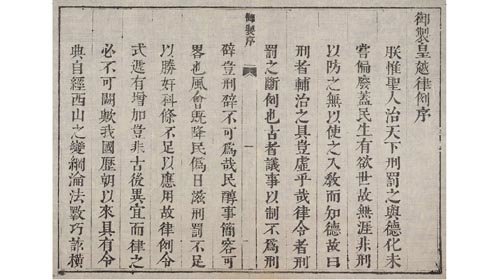 御製皇越律例序
朕惟聖人治天下刑罰之與德化未
嘗偏廢蓋民生有欲世故無涯非刑
以防之無以使之入教而知德故曰
刑者輔治之具豈虛乎哉律令者刑
罰之斷例也古者議事以制不爲刑
御製序
一
辟豈刑辟不可爲哉民醇事簡容可
畧也風會既降民僞日滋刑罰不足
以勝奸科條不足以應用故律例令
式遞有增加豈非古後異宜而律之
必不可闕歟我國歷朝以來具有令
典自經西山之變綱淪法斁巧詆橫